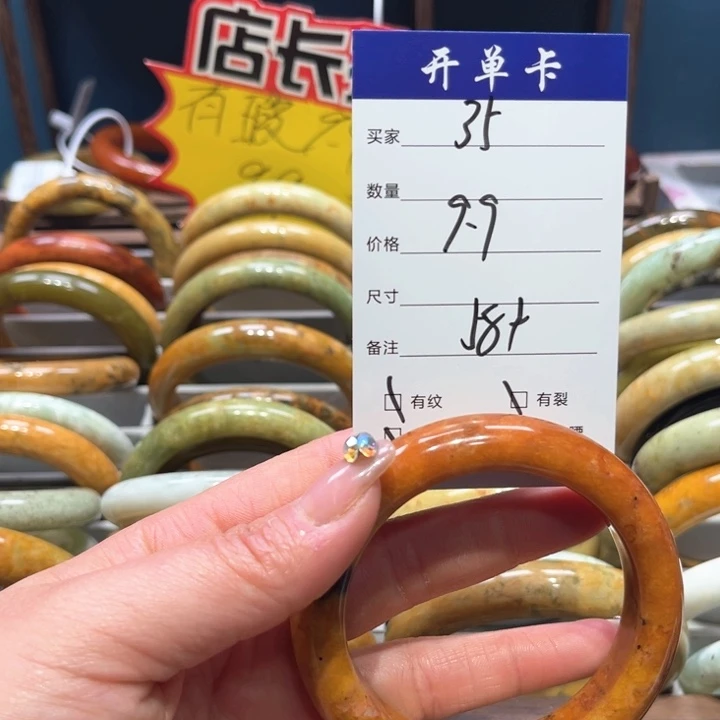 店长
有瑕 9.9
开单卡
买家 35
数量
价格 9.9
尺寸
备注 58+
□有纹 □有裂